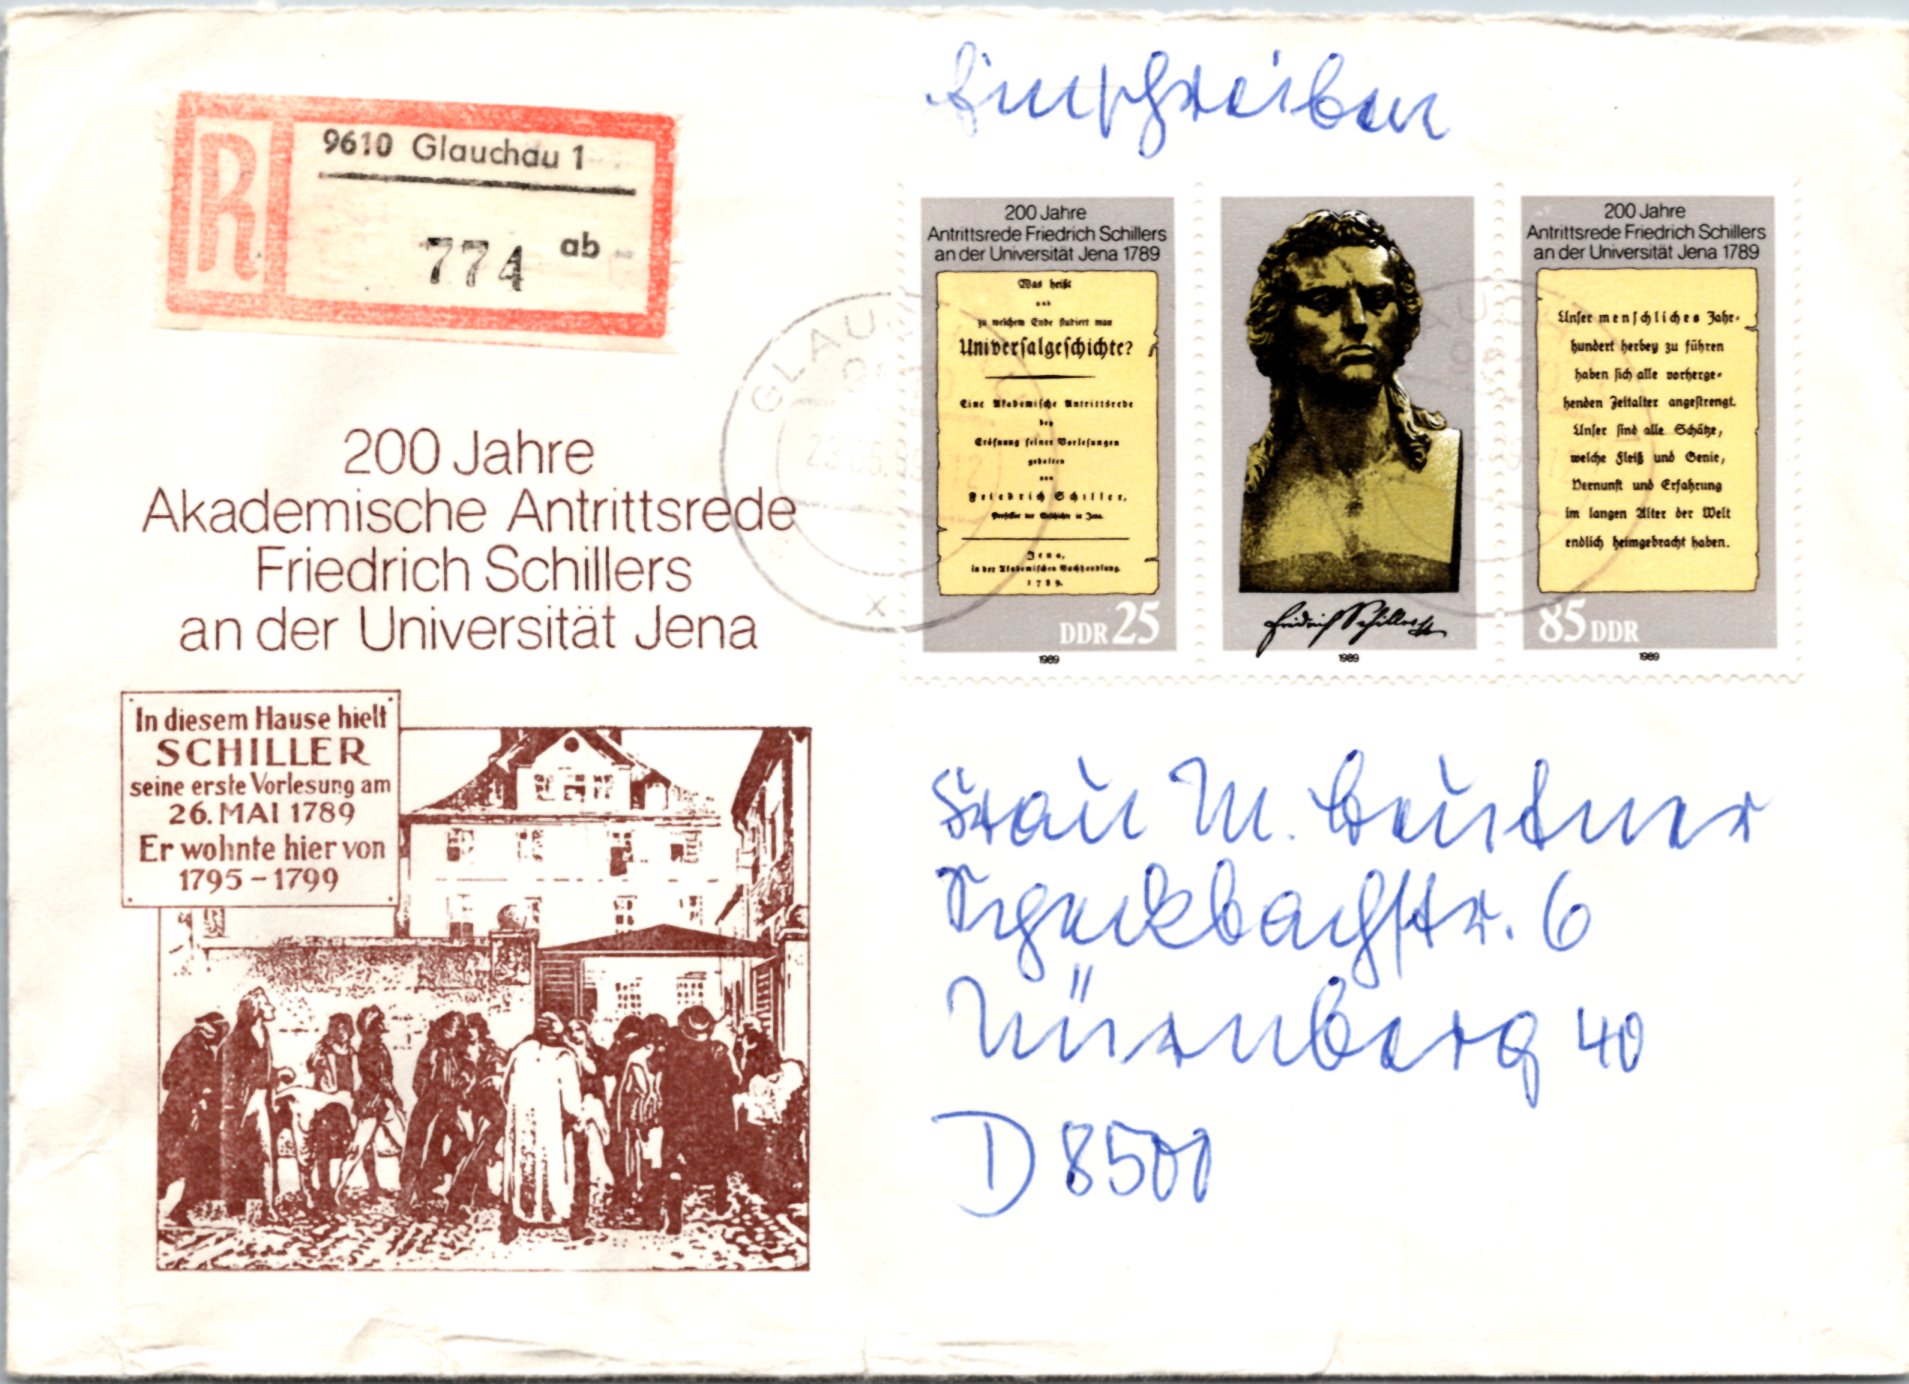 Einschreiben
R
9610 Glauchau 1
774 ab
200 Jahre
Akademische Antrittsrede
Friedrich Schillers
an der Universität Jena
In diesem Hause hielt
SCHILLER
seine erste Vorlesung am
26. MAI 1789
Er wohnte hier von
1795 – 1799
200 Jahre
Antrittsrede Friedrich Schillers
an der Universität Jena 1789
Was heißt
und
zu welchem Ende studiert man
Universalgeschichte?
Eine Akademische Antrittsrede
bey
Eröfnung seiner Vorlesungen
gehalten
von
Friedrich Schiller,
Professor der Geschichte in Jena.
Jena,
in der Akademischen Buchhandlung.
1789.
DDR 25
1989
Friedrich Schiller
1989
200 Jahre
Antrittsrede Friedrich Schillers
an der Universität Jena 1789
Unser menschliches Jahr-
hundert herbey zu führen
haben sich alle vorherge-
henden Zeitalter angestrengt.
Unser sind alle Schätze,
welche Fleiß und Genie,
Vernunft und Erfahrung
im langen Alter der Welt
endlich heimgebracht haben.
85 DDR
1989
GLAU
x
Frau M.
Nürnberg 40
D 8500